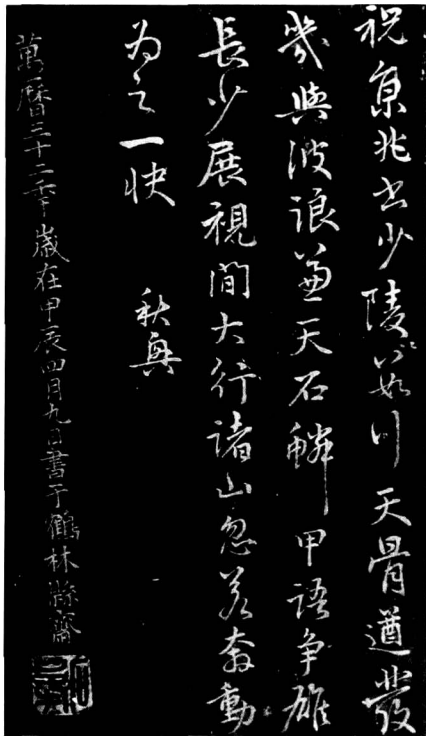 祝京兆書少陵天骨遒發
幾與波浪兼天石鱗甲語爭雄
長少展視間大行諸山忽若奔動
為之一快 秋興
萬曆三十二年歲在甲辰四月九日書于鶴林齋